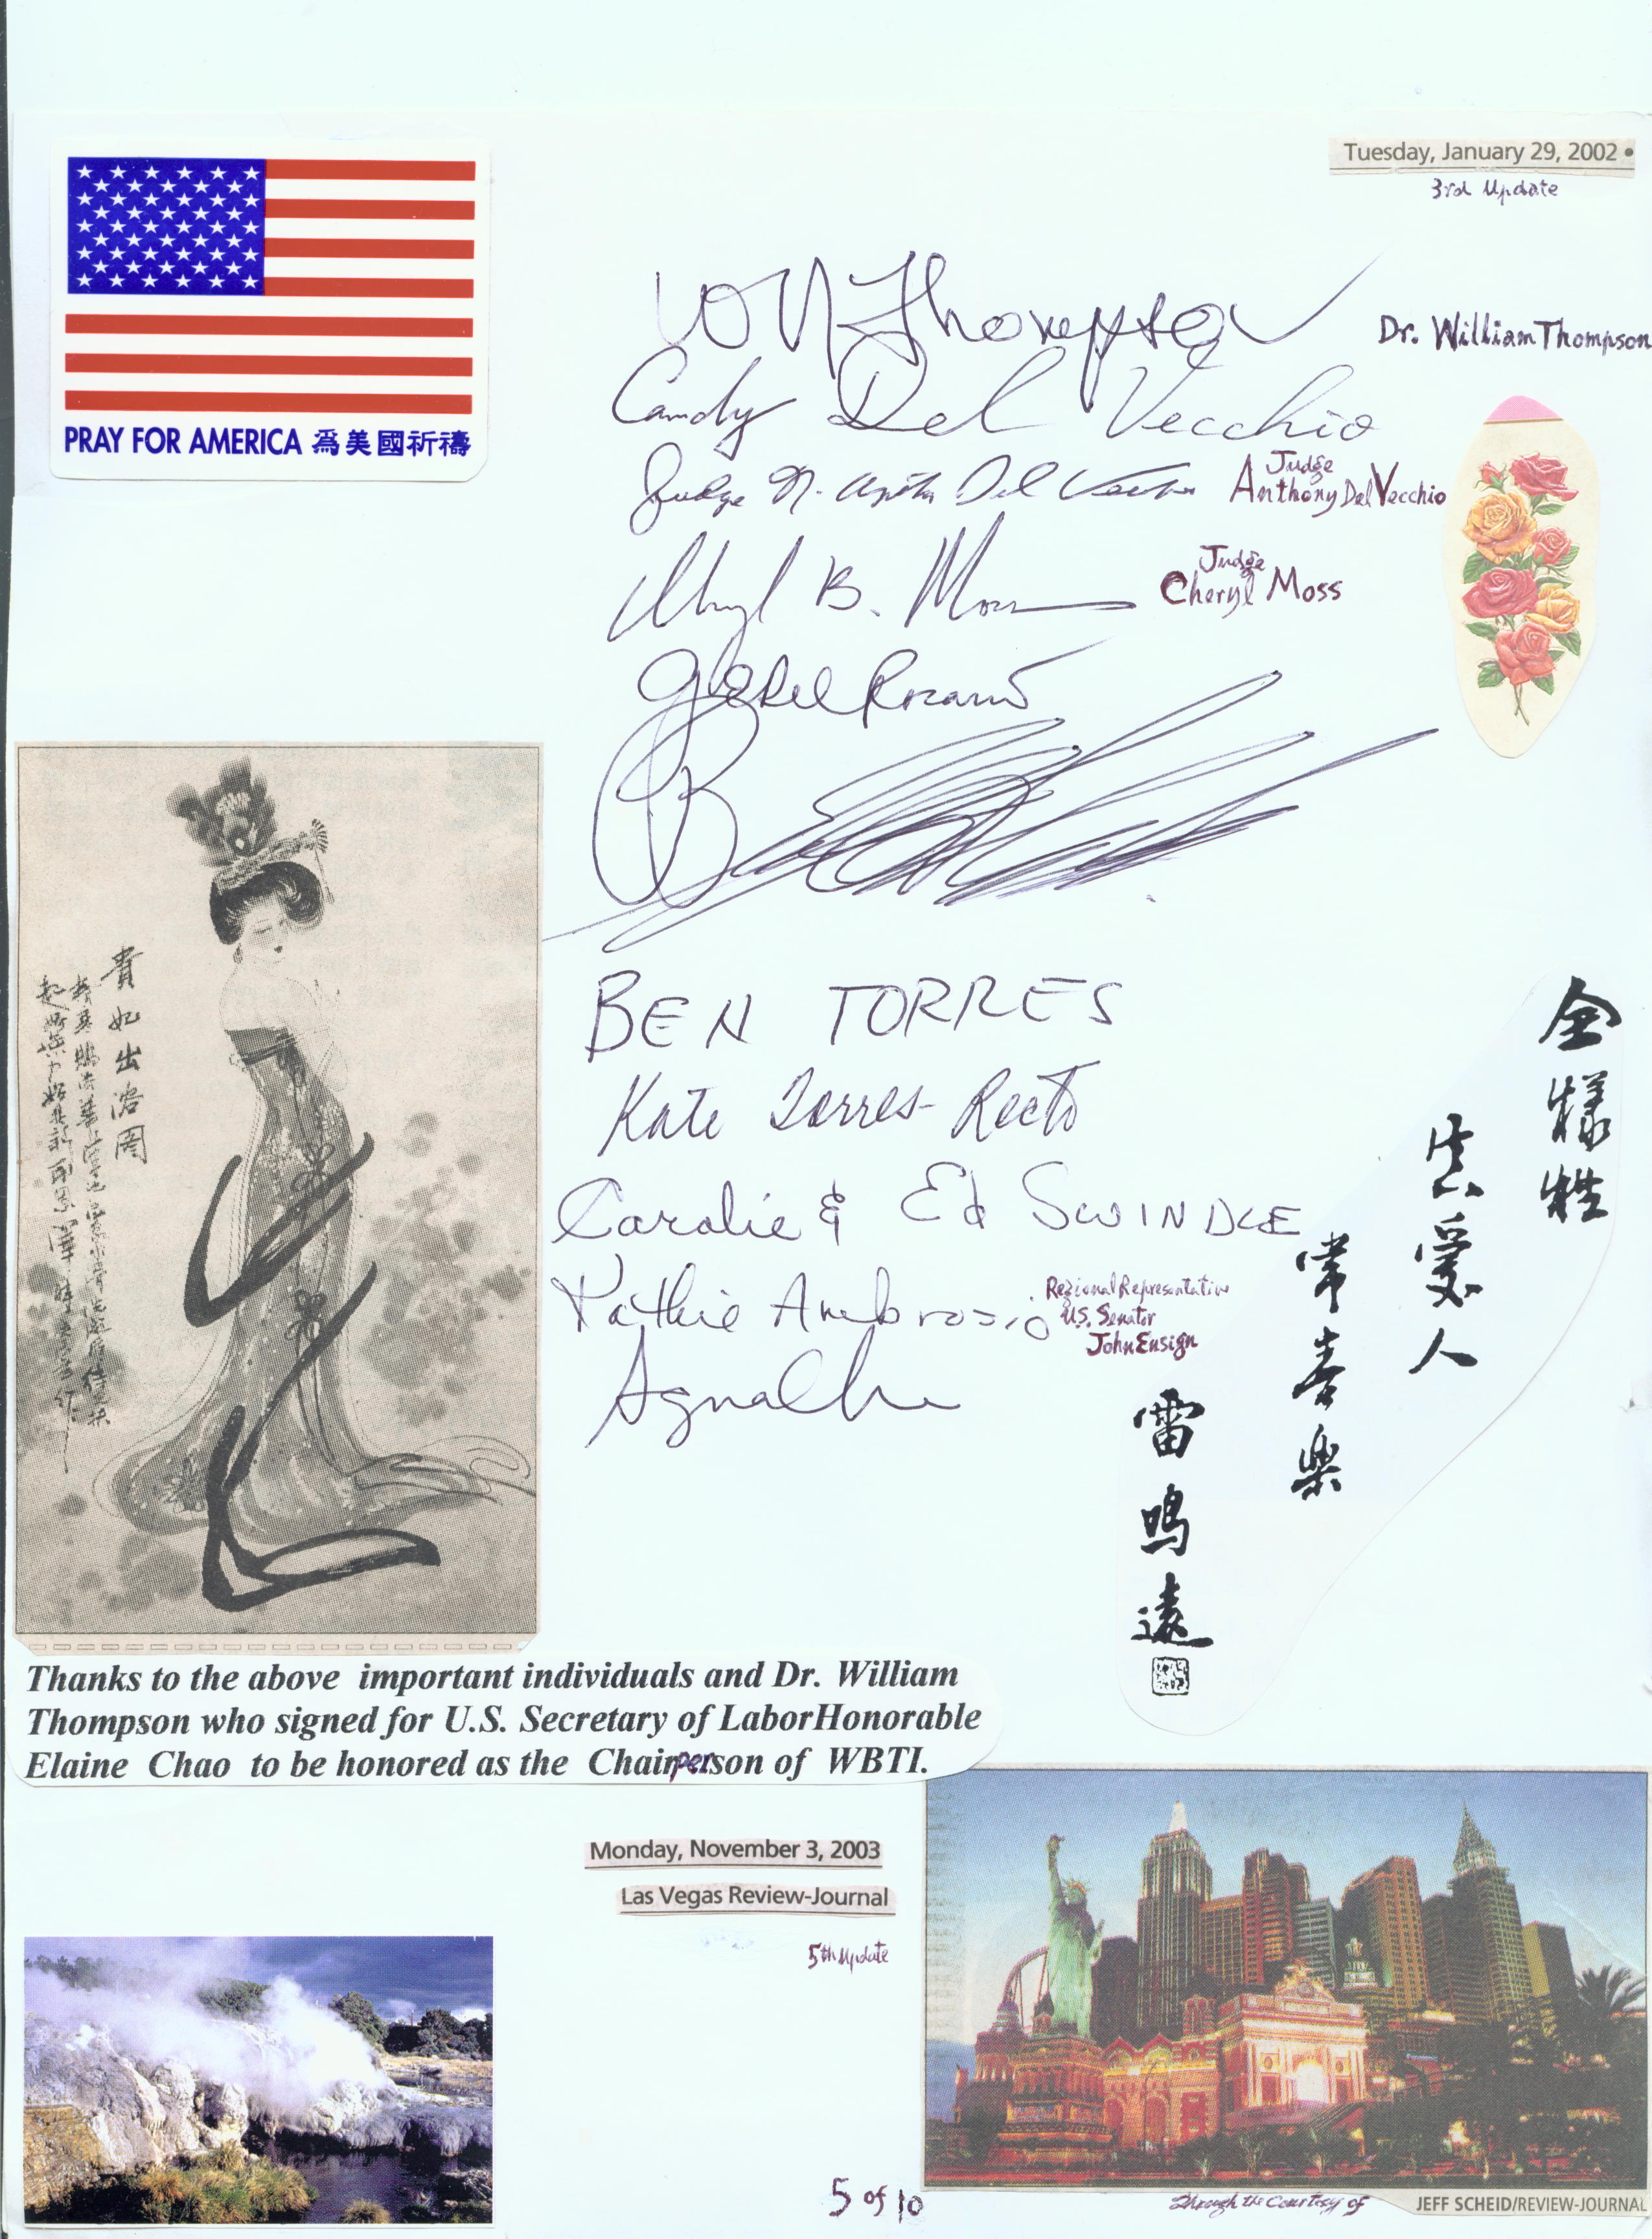 Tuesday, January 29, 2002 •
3rd Update
PRAY FOR AMERICA 為美國祈禱
Thompson
Dr. William Thompson
Candy Del Vecchio
Judge
Del Vecchio
Judge
Anthony Del Vecchio
Cheryl B. Moss
Judge
Cheryl Moss
BEN TORRES
Kate Torres-Recto
Caralie & Ed SWINDLE
Kathie Ambrosio
Regional Representative
U.S. Senator
John Ensign
貴妃出浴圖
全犧牲
真愛人
常喜樂
雷鳴遠
Thanks to the above important individuals and Dr. William
Thompson who signed for U.S. Secretary of LaborHonorable
Elaine Chao to be honored as the Chairperson of WBTI.
Monday, November 3, 2003
Las Vegas Review-Journal
5th Update
5 of 10
Through the Courtesy of
JEFF SCHEID/REVIEW-JOURNAL